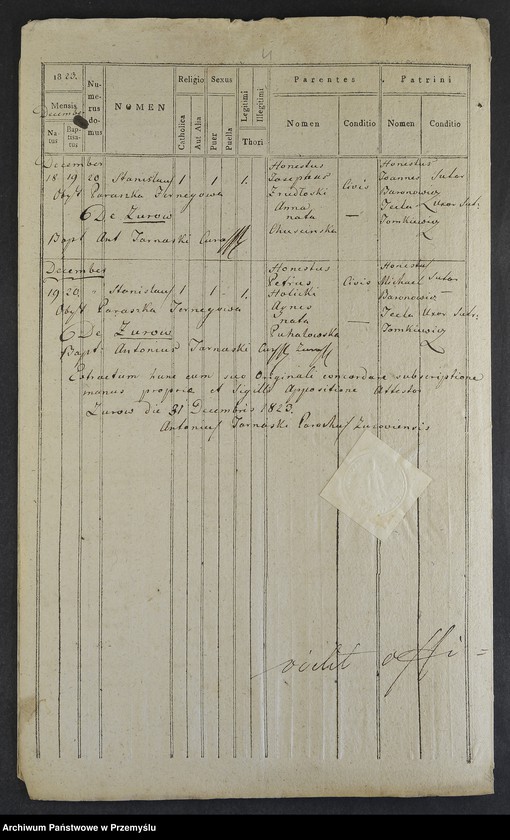 4
1823.
Mensis
December
Natus
Baptisatus
Numerus domus
NOMEN
Religio
Catholica
Aut Alia
Sexus
Puer
Puella
Legitimi
Illegitimi
Thori
Parentes
Nomen
Conditio
Patrini
Nomen
Conditio
December
18 19 20 Stanislaus 1 1 1. Honestus Josephus Civis Honestus Joannes Sutor
Obst Paraszka Anna Baronowicz
De Zurow nata — Tecla Uxor Sut:
Bapt Ant Tarnaski Tomkiewicz
December
19 20 - Stanislaus 1 1 - 1. Honestus Petrus Civis Honestus Michael Sutor
Obst Paraszka Holicki Baronowicz —
De Zurow Agnes nata — Tecla Uxor Sut:
Bapt: Antonius Tarnaski Puhalowska Tomkiewicz
Extractum hunc cum suo Originali concordare subscriptione
manus propriæ et Sigilli Appositione Attestor
Zurow die 31 Decembris 1823.
Antonius Tarnaski Parochus Zurowiensis
vidit offi =
Archiwum Państwowe w Przemyślu